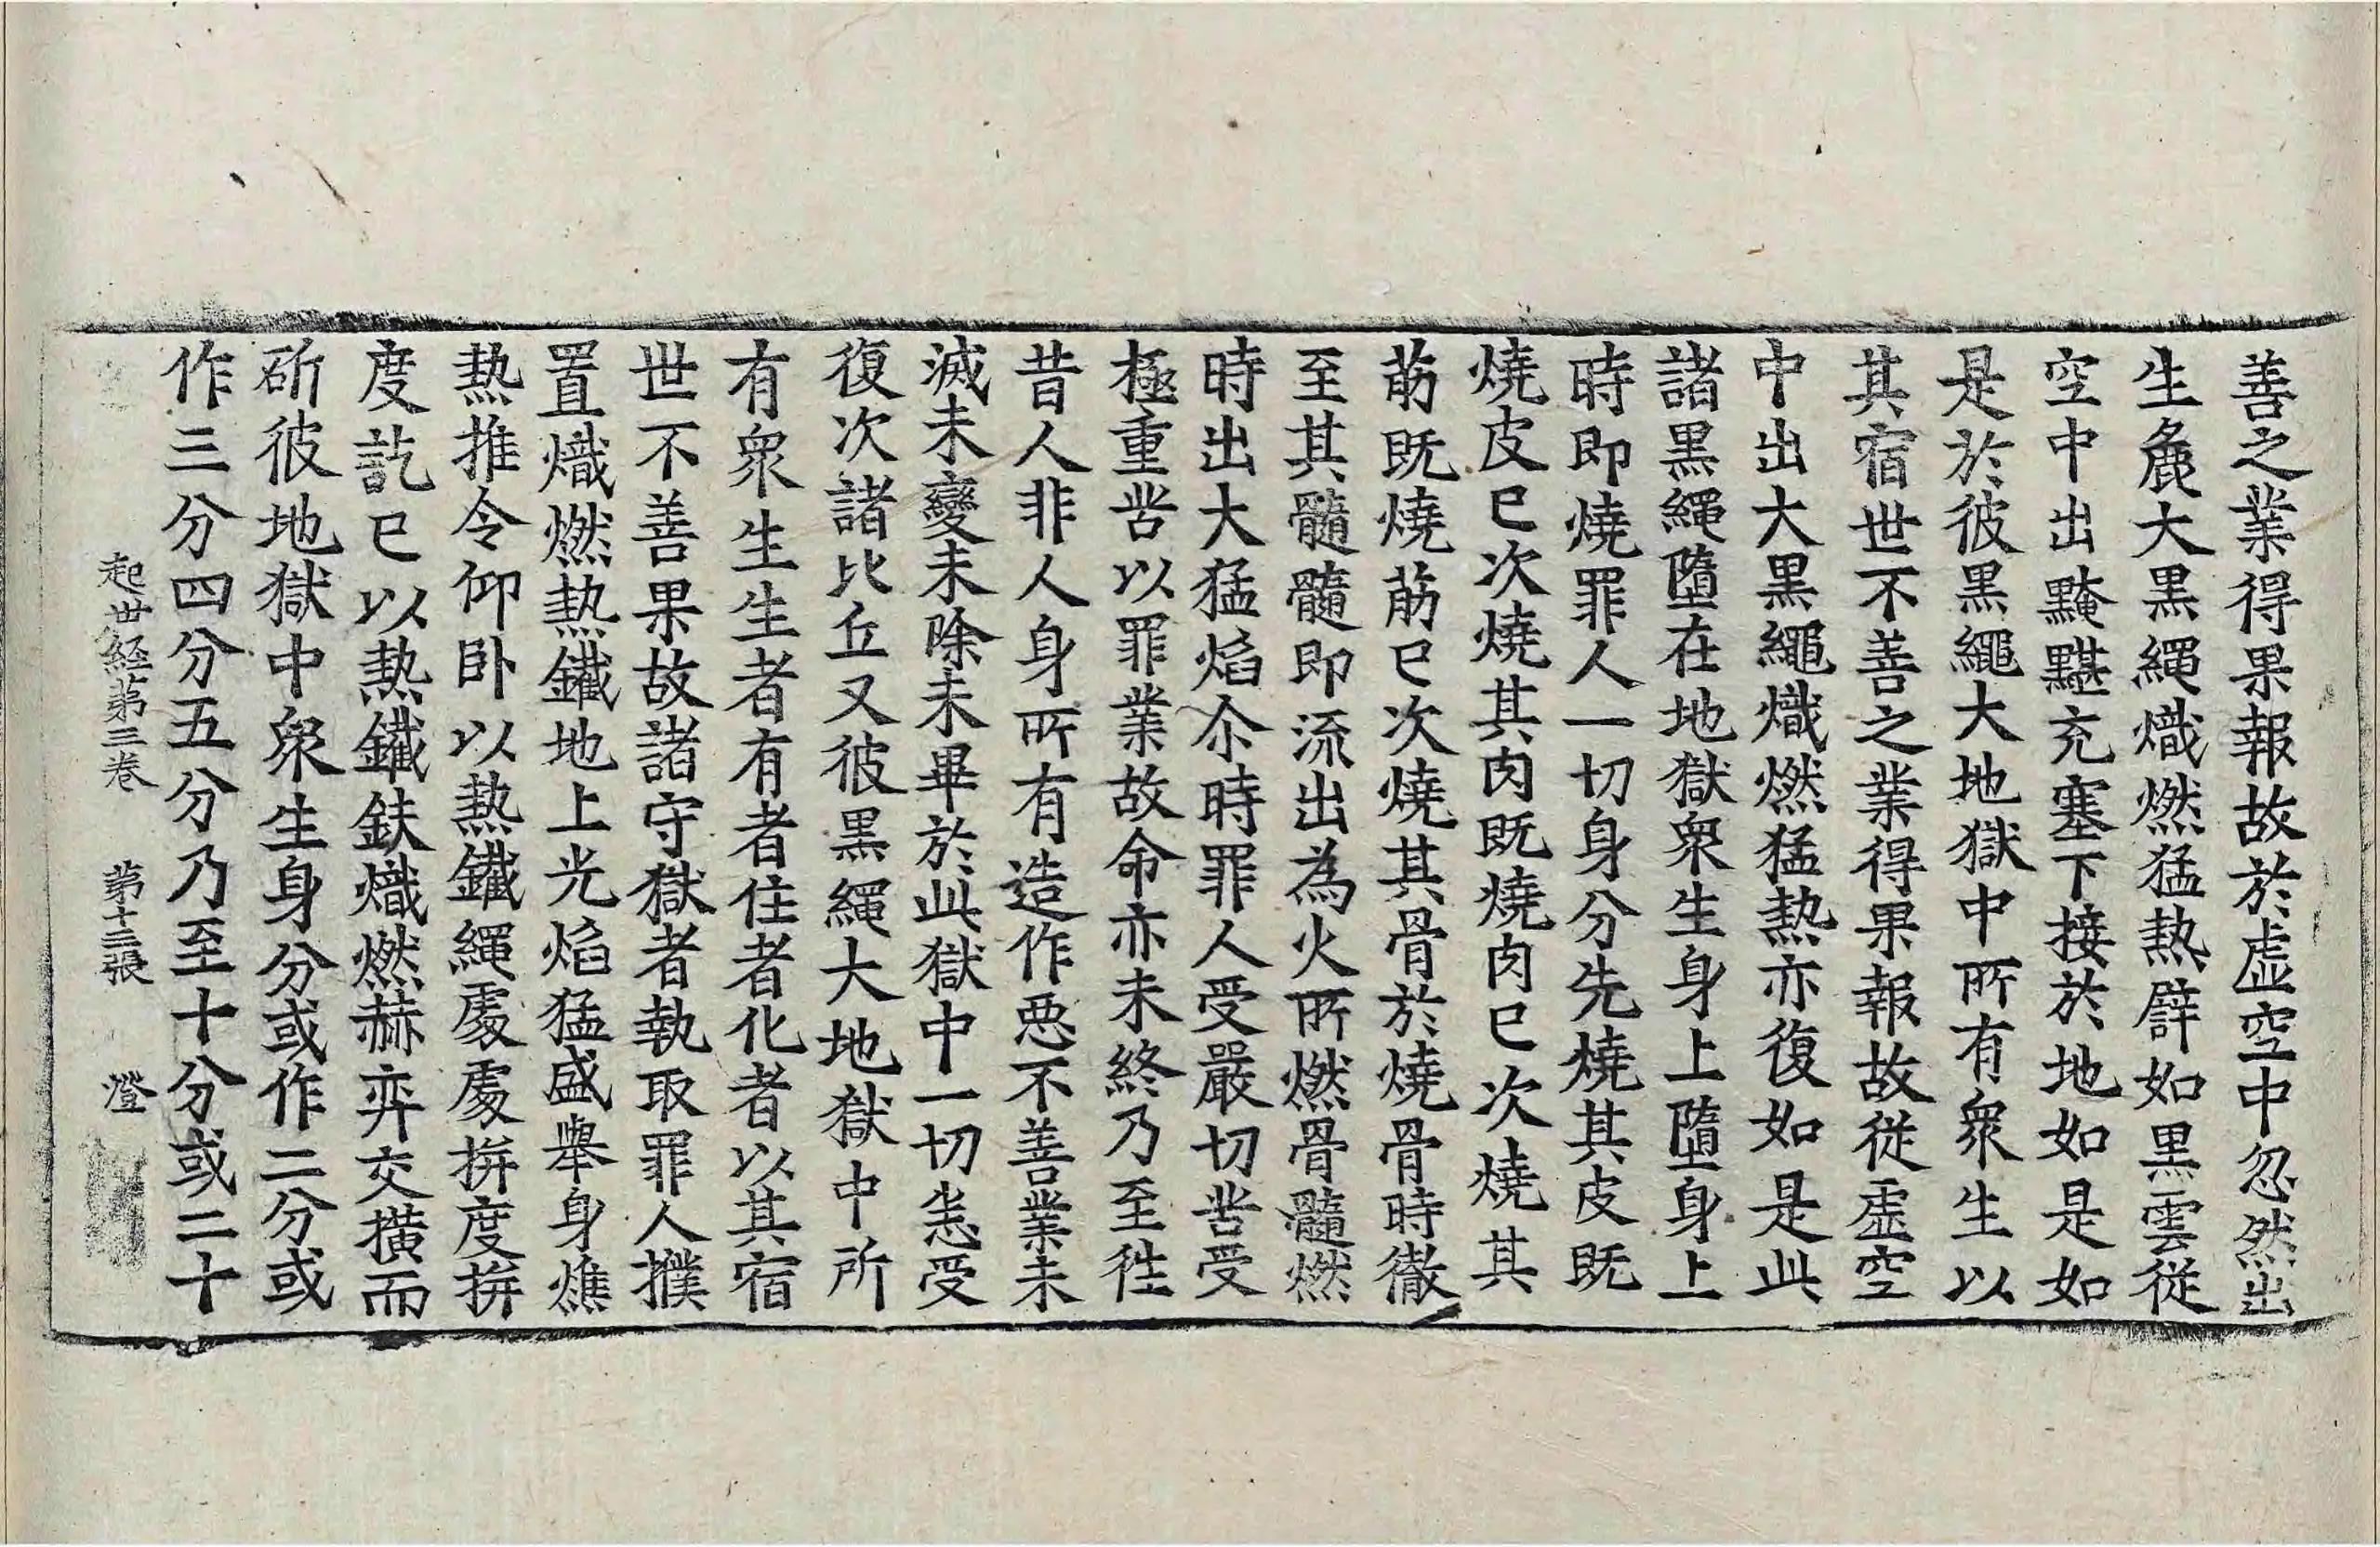 善之業得果報故於虛空中忽然出
生麁大黒繩熾燃猛熱譬如黒雲從
空中出黤黮充塞下接於地如是如
是於彼黒繩大地獄中所有衆生以
其宿世不善之業得果報故從虛空
中出大黒繩熾燃猛熱亦復如是此
諸黒繩墮在地獄衆生身上墮身上
時即燒罪人一切身分先燒其皮既
燒皮已次燒其肉既燒肉已次燒其
筋既燒筋已次燒其骨於燒骨時徹
至其髓髓即流出為火所燃骨髓燃
時出大猛焰尒時罪人受嚴切苦受
極重苦以罪業故命亦未終乃至徃
昔人非人身所有造作惡不善業未
滅未變未除未畢於此獄中一切悉受
復次諸比丘又彼黒繩大地獄中所
有衆生生者有者住者化者以其宿
世不善果故諸守獄者執取罪人撲
置熾燃熱鐵地上光焰猛盛舉身燋
熱推令仰卧以熱鐵繩處處拼度拼
度訖已以熱鐵鈇熾燃赫弈交撗而
斫彼地獄中衆生身分或作二分或
作三分四分五分乃至十分或二十
起世経第三卷 第十三張 澄